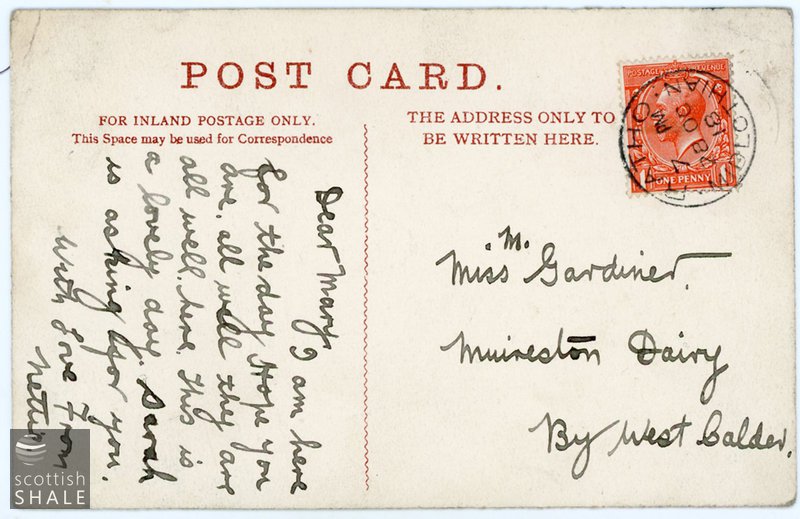 POST CARD.
FOR INLAND POSTAGE ONLY.
This Space may be used for Correspondence
THE ADDRESS ONLY TO
BE WRITTEN HERE.
POSTAGE REVENUE
ONE PENNY
RATHO
MIDLOTHIAN
PM
18
Dear Mary I am here
for the day Hope you
are all well they are
all well here. This is
a lovely day Sarah
is asking for you.
With Love From
Nettie
Miss M. Gardiner.
Muireston Dairy
By West Calder.
scottish
SHALE